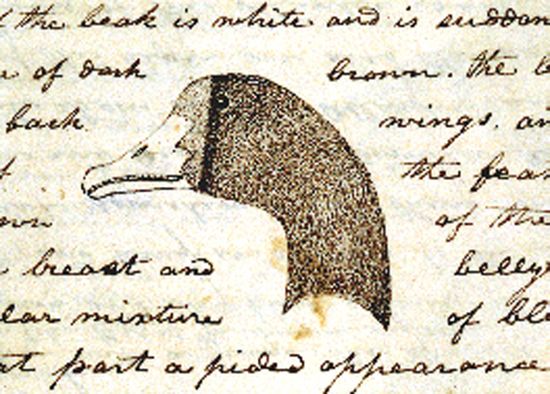 the beak is white and is
of dark brown. the
back wings. an
the
of the
breast and belly
mixture of
part a pided appearance